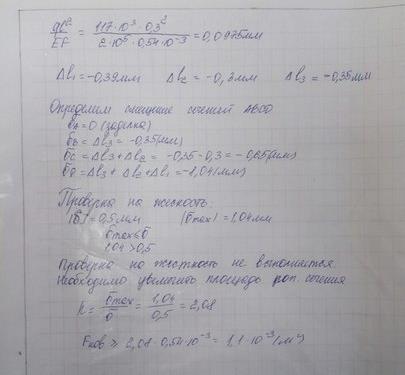 ql²/EF = 117·10³·0,3²/2·10⁵·0,54·10⁻³ = 0,0975мм
Δl₁ = -0,39мм Δl₂ = -0,3мм Δl₃ = -0,35мм
Определим смещение сечений ABCD
δA = 0 (заделка)
δB = Δl₃ = -0,35(мм)
δC = Δl₃ + Δl₂ = -0,35 - 0,3 = -0,65(мм)
δD = Δl₃ + Δl₂ + Δl₁ = -1,04(мм)
Проверка на жесткость:
|δ| = 0,5мм |δmax| = 1,04мм
δmax ≤ δ
1,04 > 0,5
Проверка на жесткость не выполняется.
Необходимо увеличить площадь поп. сечения
k = δmax/δ = 1,04/0,5 = 2,08
Fнов ≥ 2,08·0,54·10⁻³ = 1,1·10⁻³(м²)